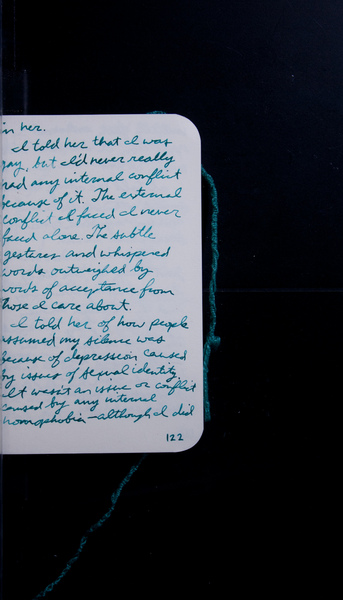 in her.
I told her that I was
gay, but I'd never really
had any internal conflict
because of it. The external
conflict I faced I never
faced alone. The subtle
gestures and whispered
words outweighed by
words of acceptance from
those I care about.
I told her of how people
assumed my silence was
because of depression caused
by issues of sexual identity.
It wasn't an issue or conflict
caused by any internal
homophobia—although I did
122